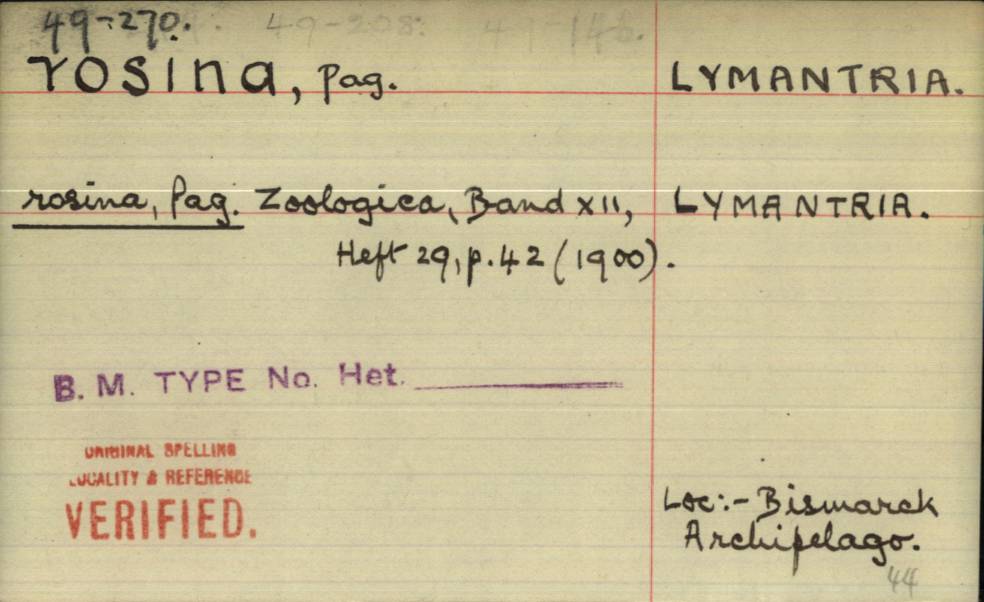 49-270. 49-208.
rosina, Pag. LYMANTRIA.
rosina, Pag. Zoologica, Band XII, LYMANTRIA.
Heft 29, p. 42 (1900).
B. M. TYPE No. Het.
ORIGINAL SPELLING
LOCALITY & REFERENCE
VERIFIED.
Loc:- Bismarck
Archipelago.
44